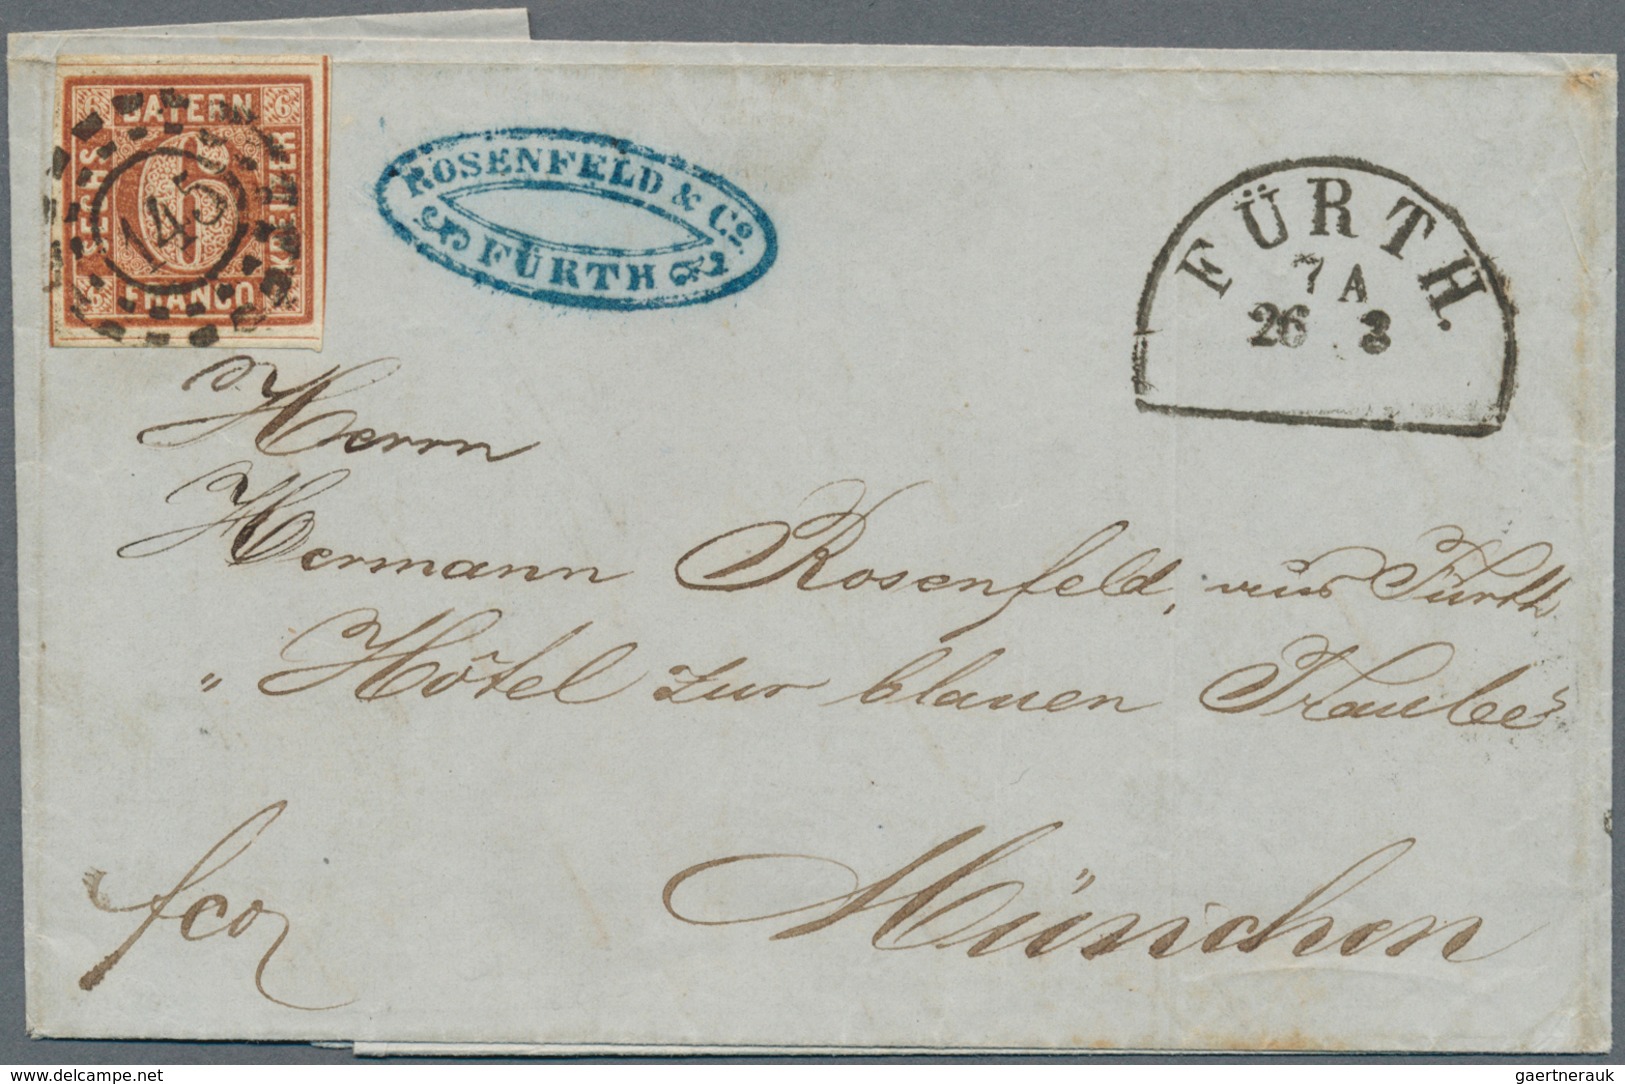 6 BAYERN 6
SECHS
KREUZER
6
145
6 FRANCO 6
ROSENFELD & Co
FÜRTH
FÜRTH.
7 A
26 3
Herrn
Hermann Rosenfeld, aus Fürth
„Hôtel zur blauen Traube"
fco
München
www.delcampe.net
gaertnerauk